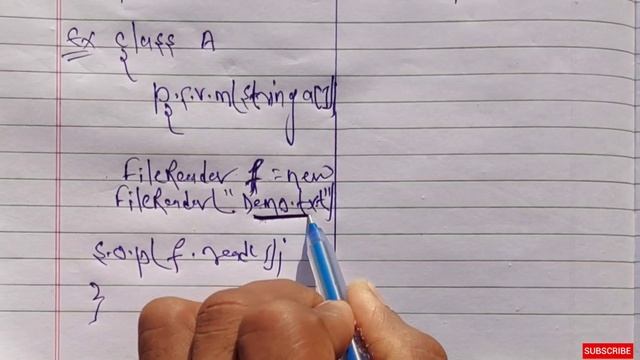 Ex class A
{
p.s.v.m(string a[])
{
FileReader f = new
FileReader("Demo.txt")
s.o.p(f.read());
}
SUBSCRIBE